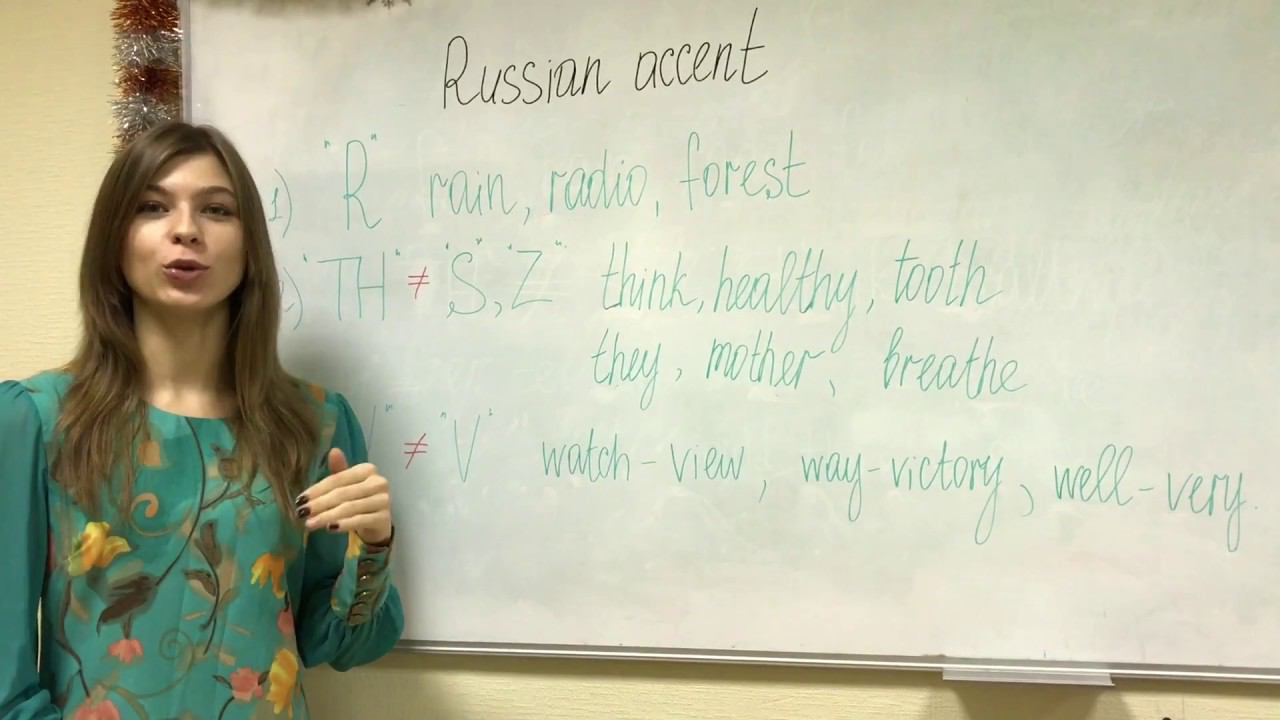 Russian accent
1) "R" rain, radio, forest
) "TH" ≠ "S", "Z" think, healthy, tooth
they, mother, breathe
" ≠ "V" watch - view, way - victory, well - very.